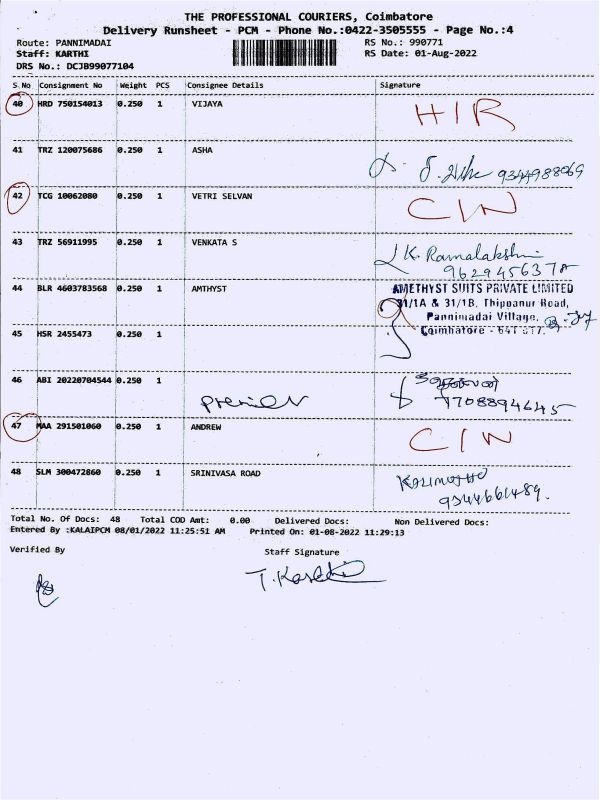 THE PROFESSIONAL COURIERS, Coimbatore
Delivery Runsheet - PCM - Phone No.:0422-3505555 - Page No.:4
Route: PANNIMADAI RS No.: 990771
Staff: KARTHI RS Date: 01-Aug-2022
DRS No.: DCJB99077104
S No Consignment No Weight PCS Consignee Details Signature
40 HRD 750154013 0.250 1 VIJAYA HIR
41 TRZ 120075686 0.250 1 ASHA
9344988069
42 TCG 10062080 0.250 1 VETRI SELVAN CIN
43 TRZ 56911995 0.250 1 VENKATA S K. Ramalakshmi
9629456378
44 BLR 4603783568 0.250 1 AMTHYST AMETHYST SUITS PRIVATE LIMITED
31/1A & 31/1B, Thippanur Road,
Pannimadai Village,
45 HSR 2455473 0.250 1 Coimbatore - 641 017.
46 ABI 20220704544 0.250 1
Premier 7708894645
47 MAA 291501060 0.250 1 ANDREW CIN
48 SLM 300472860 0.250 1 SRINIVASA ROAD
9344661489.
Total No. Of Docs: 48 Total COD Amt: 0.00 Delivered Docs: Non Delivered Docs:
Entered By :KALAIPCM 08/01/2022 11:25:51 AM Printed On: 01-08-2022 11:29:13
Verified By Staff Signature